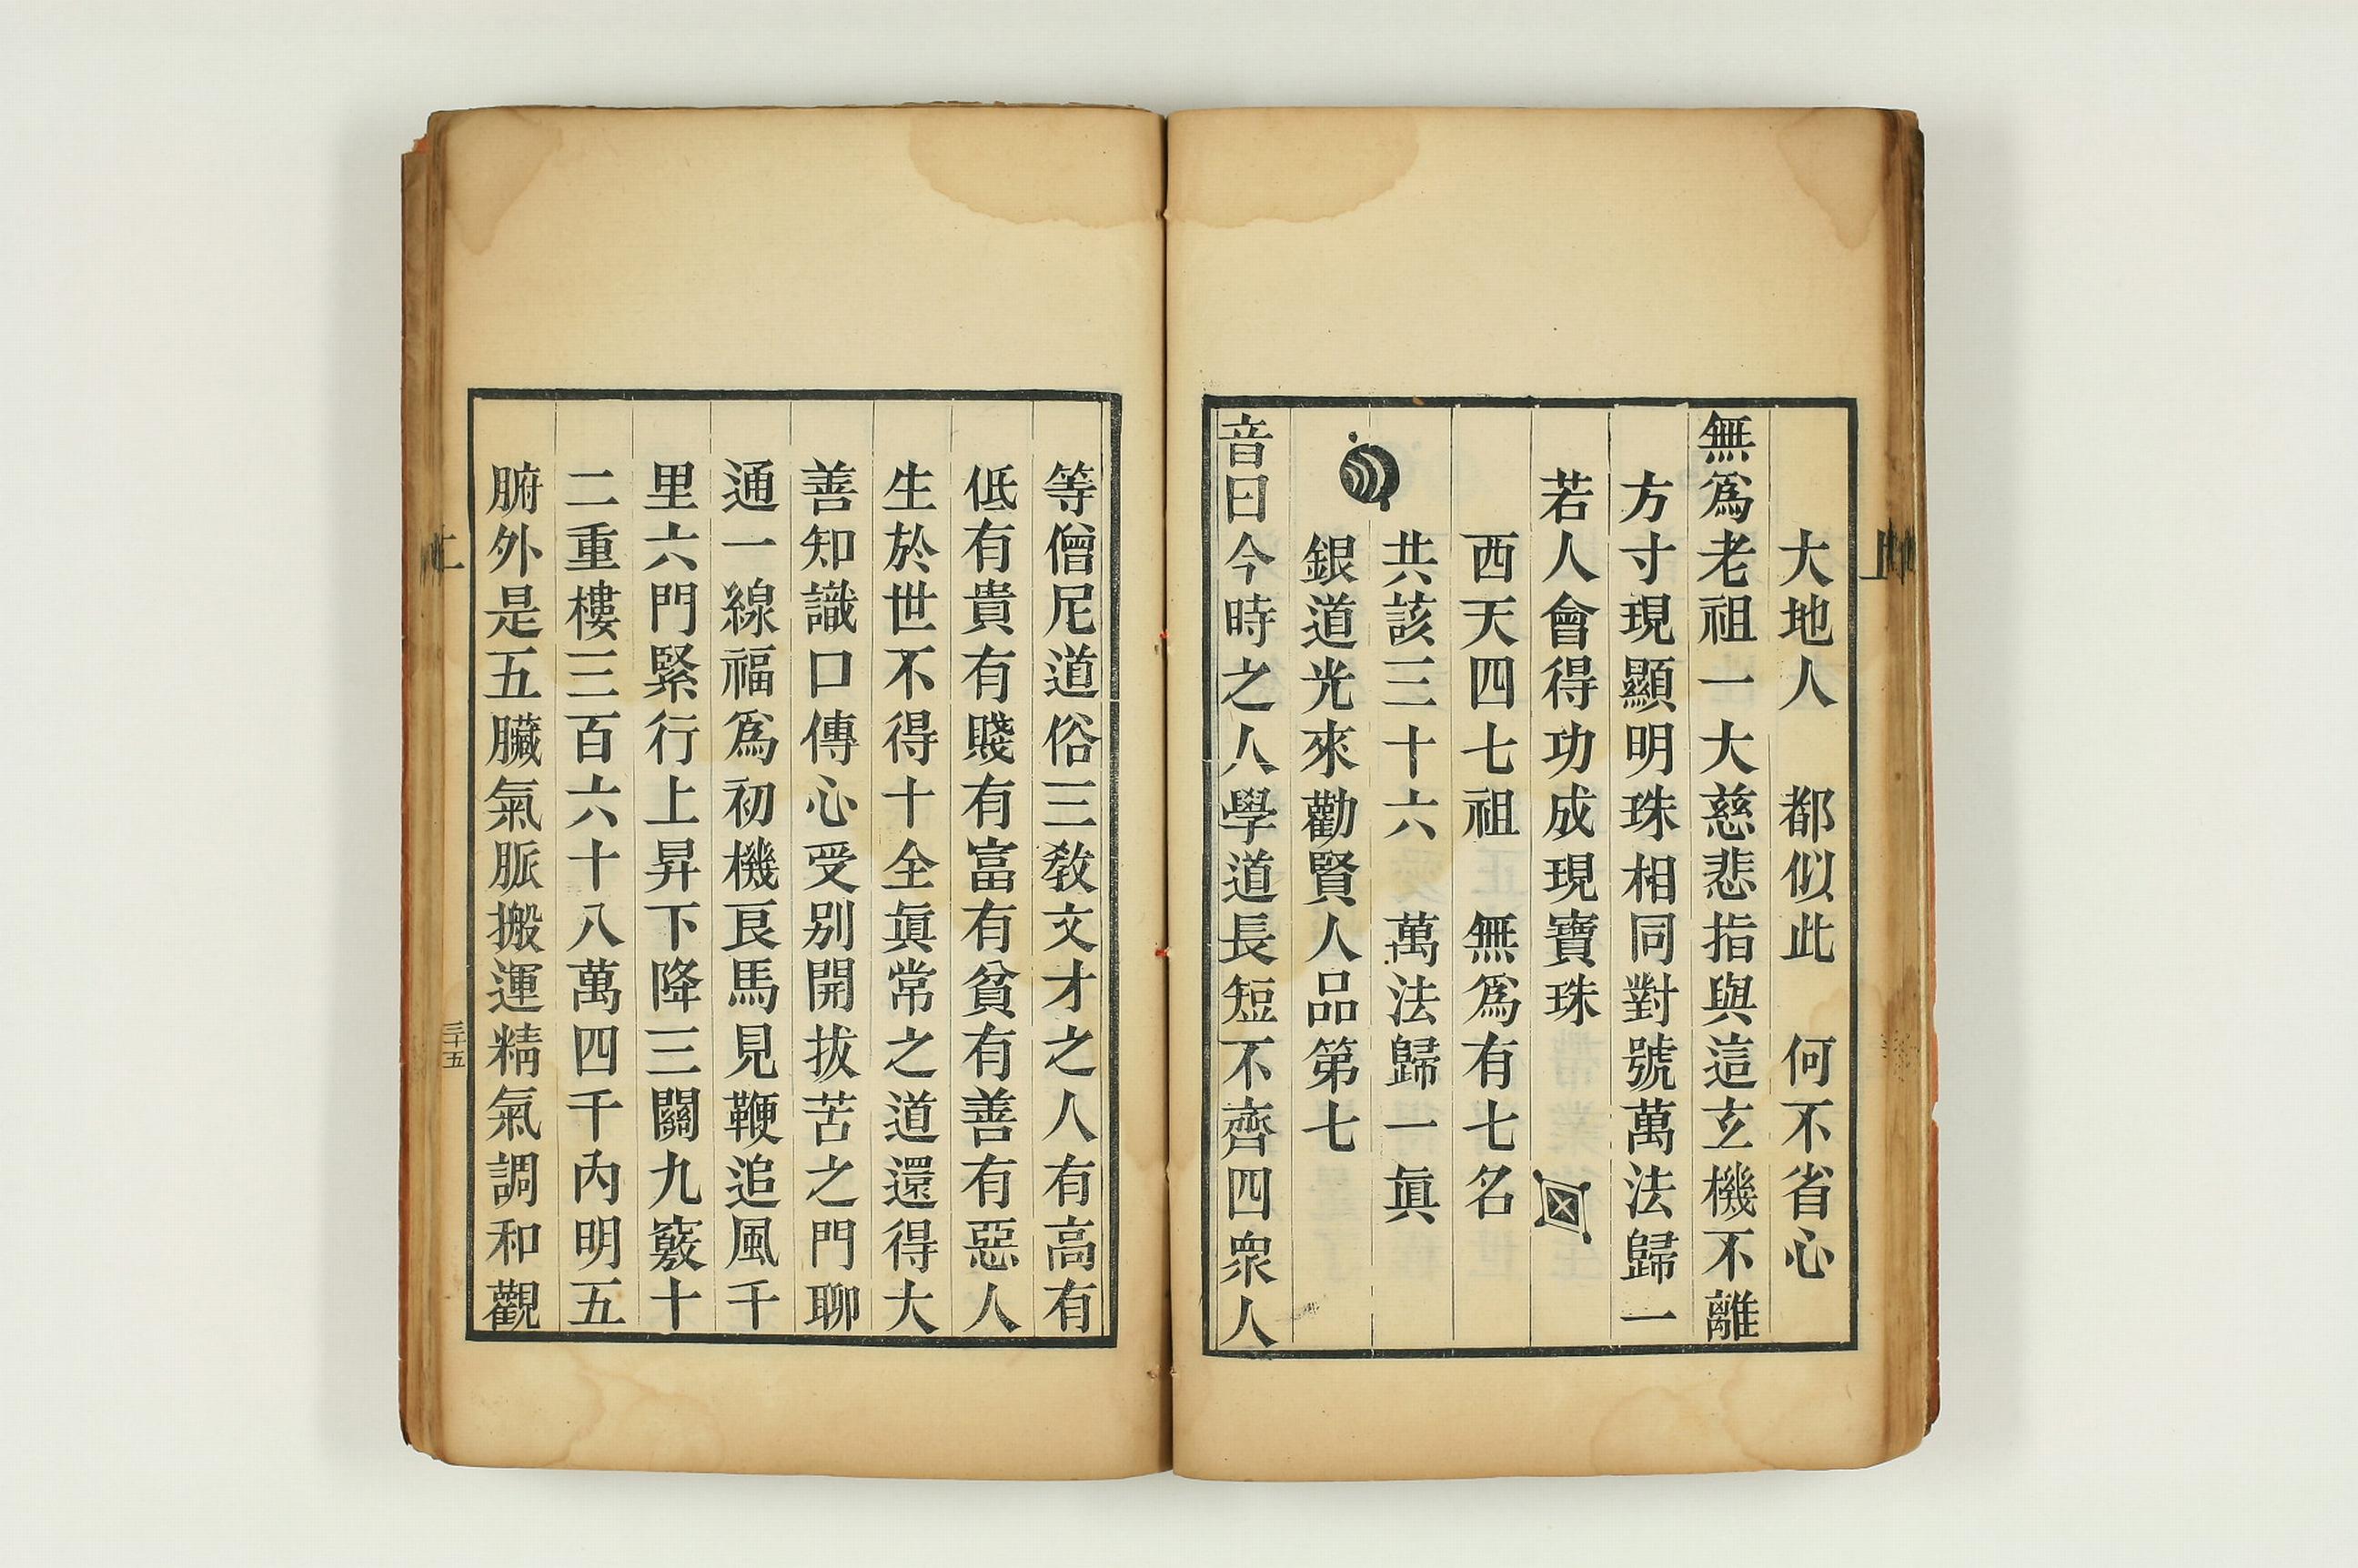 大地人　都似此　何不省心
無爲老祖一大慈悲指與這玄機不離
方寸現顯明珠相同對號萬法歸一
若人會得功成現寶珠
西天四七祖　無爲有七名
共該三十六　萬法歸一眞
銀道光來勸賢人品第七
音曰今時之人學道長短不齊四衆人
等僧尼道俗三教文才之人有高有
低有貴有賤有富有貧有善有惡人
生於世不得十全眞常之道還得大
善知識口傳心受別開拔苦之門聊
通一線福爲初機良馬見鞭追風千
里六門緊行上昇下降三關九竅十
二重樓三百六十八萬四千內明五
腑外是五臟氣脈搬運精氣調和觀
三十五